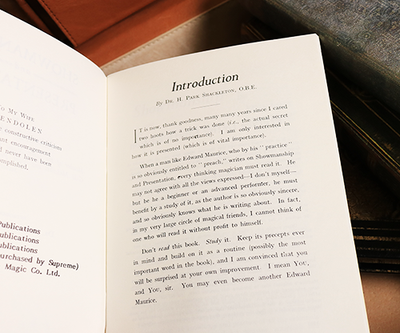 To My Wife
ENDOLEN
constructive criticism
nt encouragement
d never have been
omplished.
Publications
ublications
blications
urchased by Supreme)
Magic Co. Ltd.
Introduction
By Dr. H. Park Shackleton, O.B.E.
IT is now, thank goodness, many many years since I cared
two hoots how a trick was done (i.e., the actual secret
which is of no importance). I am only interested in
how it is presented (which is of vital importance).
When a man like Edward Maurice, who by his " practice "
is so obviously entitled to " preach," writes on Showmanship
and Presentation, every thinking magician must read it. He
may not agree with all the views expressed—I don't myself—
but be he a beginner or an advanced performer, he must
benefit by a study of it, as the author is so obviously sincere,
and so obviously knows what he is writing about. In fact,
in my very large circle of magical friends, I cannot think of
one who will read it without profit to himself.
Don't read this book. Study it. Keep its precepts ever
in mind and build on it as a routine (possibly the most
important word in the book), and I am convinced that you
will be surprised at your own improvement. I mean You,
and You, sir. You may even become another Edward
Maurice.